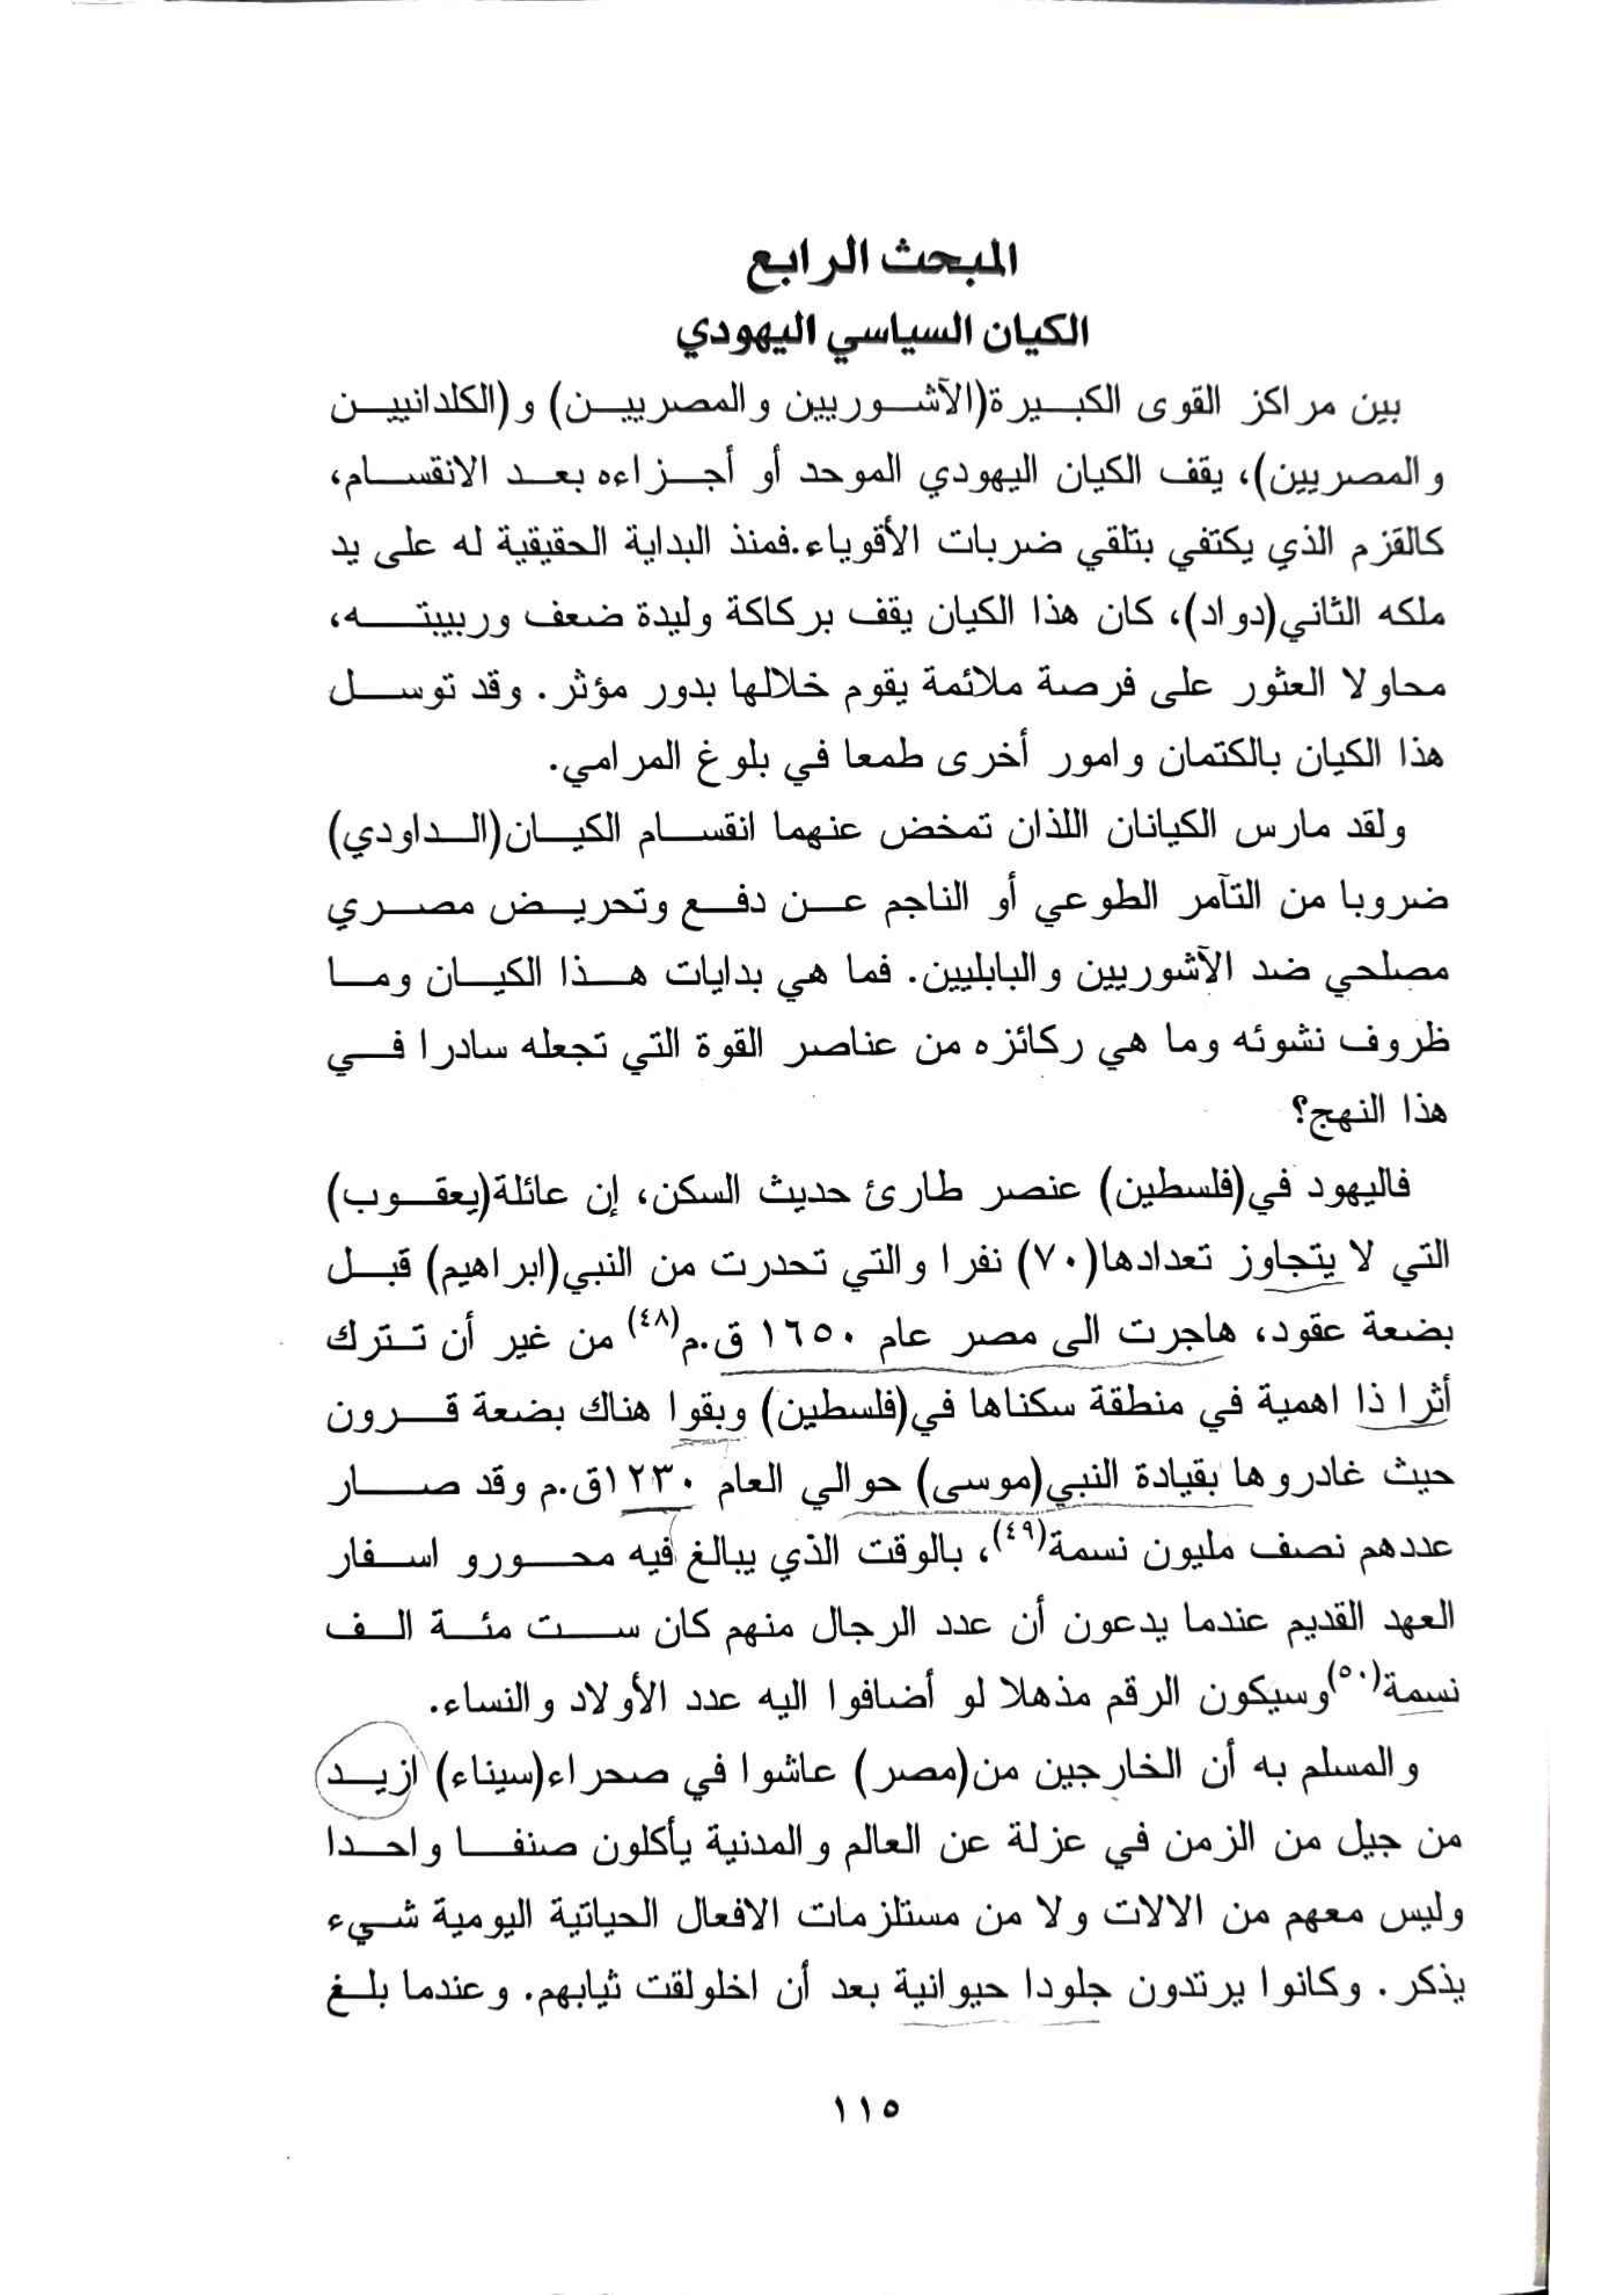 المبحث الرابع
الكيان السياسي اليهودي
بين مراكز القوى الكبيرة(الآشوريين والمصريين) و(الكلدانيين
والمصريين)، يقف الكيان اليهودي الموحد أو أجزاءه بعد الانقسام،
كالقزم الذي يكتفي بتلقي ضربات الأقوياء.فمنذ البداية الحقيقية له على يد
ملكه الثاني(دواد)، كان هذا الكيان يقف بركاكة وليدة ضعف وربيبته،
محاولا العثور على فرصة ملائمة يقوم خلالها بدور مؤثر. وقد توسل
هذا الكيان بالكتمان وامور أخرى طمعا في بلوغ المرامي.
ولقد مارس الكيانان اللذان تمخض عنهما انقسام الكيان(الداودي)
ضروبا من التآمر الطوعي أو الناجم عن دفع وتحريض مصري
مصلحي ضد الآشوريين والبابليين. فما هي بدايات هذا الكيان وما
ظروف نشوئه وما هي ركائزه من عناصر القوة التي تجعله سادرا في
هذا النهج؟
فاليهود في(فلسطين) عنصر طارئ حديث السكن، إن عائلة(يعقوب)
التي لا يتجاوز تعدادها(٧٠) نفرا والتي تحدرت من النبي(ابراهيم) قبل
بضعة عقود، هاجرت الى مصر عام ١٦٥٠ ق.م(٤٨) من غير أن تترك
أثرا ذا اهمية في منطقة سكناها في(فلسطين) وبقوا هناك بضعة قرون
حيث غادروها بقيادة النبي(موسى) حوالي العام ١٢٣٠ق.م وقد صار
عددهم نصف مليون نسمة(٤٩)، بالوقت الذي يبالغ فيه محورو اسفار
العهد القديم عندما يدعون أن عدد الرجال منهم كان ست مئة الف
نسمة(٥٠)وسيكون الرقم مذهلا لو أضافوا اليه عدد الأولاد والنساء.
والمسلم به أن الخارجين من(مصر) عاشوا في صحراء(سيناء) ازيد
من جيل من الزمن في عزلة عن العالم والمدنية يأكلون صنفا واحدا
وليس معهم من الالات ولا من مستلزمات الافعال الحياتية اليومية شيء
يذكر. وكانوا يرتدون جلودا حيوانية بعد أن اخلولقت ثيابهم. وعندما بلغ
١١٥